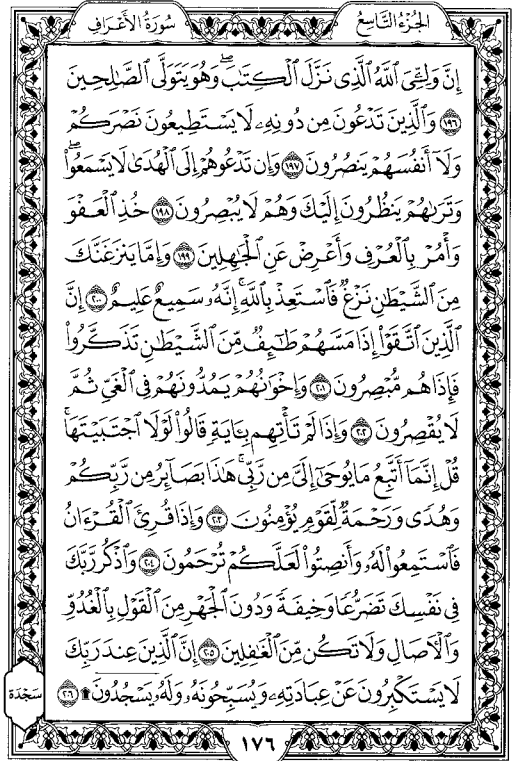 سُورَةُ الأَعْرَافِ الجُزْءُ التَّاسِعُ
إِنَّ وَلِـِّۧيَ ٱللَّهُ ٱلَّذِى نَزَّلَ ٱلْكِتَٰبَۖ وَهُوَ يَتَوَلَّى ٱلصَّٰلِحِينَ
١٩٦ وَٱلَّذِينَ تَدْعُونَ مِن دُونِهِۦ لَا يَسْتَطِيعُونَ نَصْرَكُمْ
وَلَآ أَنفُسَهُمْ يَنصُرُونَ ١٩٧ وَإِن تَدْعُوهُمْ إِلَى ٱلْهُدَىٰ لَا يَسْمَعُوا۟ۖ
وَتَرَىٰهُمْ يَنظُرُونَ إِلَيْكَ وَهُمْ لَا يُبْصِرُونَ ١٩٨ خُذِ ٱلْعَفْوَ
وَأْمُرْ بِٱلْعُرْفِ وَأَعْرِضْ عَنِ ٱلْجَٰهِلِينَ ١٩٩ وَإِمَّا يَنزَغَنَّكَ
مِنَ ٱلشَّيْطَٰنِ نَزْغٌ فَٱسْتَعِذْ بِٱللَّهِۚ إِنَّهُۥ سَمِيعٌ عَلِيمٌ ٢٠٠ إِنَّ
ٱلَّذِينَ ٱتَّقَوْا۟ إِذَا مَسَّهُمْ طَٰٓئِفٌ مِّنَ ٱلشَّيْطَٰنِ تَذَكَّرُوا۟
فَإِذَا هُم مُّبْصِرُونَ ٢٠١ وَإِخْوَٰنُهُمْ يَمُدُّونَهُمْ فِى ٱلْغَىِّ ثُمَّ
لَا يُقْصِرُونَ ٢٠٢ وَإِذَا لَمْ تَأْتِهِم بِـَٔايَةٍ قَالُوا۟ لَوْلَا ٱجْتَبَيْتَهَاۚ
قُلْ إِنَّمَآ أَتَّبِعُ مَا يُوحَىٰٓ إِلَىَّ مِن رَّبِّىۚ هَٰذَا بَصَآئِرُ مِن رَّبِّكُمْ
وَهُدًى وَرَحْمَةٌ لِّقَوْمٍ يُؤْمِنُونَ ٢٠٣ وَإِذَا قُرِئَ ٱلْقُرْءَانُ
فَٱسْتَمِعُوا۟ لَهُۥ وَأَنصِتُوا۟ لَعَلَّكُمْ تُرْحَمُونَ ٢٠٤ وَٱذْكُر رَّبَّكَ
فِى نَفْسِكَ تَضَرُّعًا وَخِيفَةً وَدُونَ ٱلْجَهْرِ مِنَ ٱلْقَوْلِ بِٱلْغُدُوِّ
وَٱلْـَٔاصَالِ وَلَا تَكُن مِّنَ ٱلْغَٰفِلِينَ ٢٠٥ إِنَّ ٱلَّذِينَ عِندَ رَبِّكَ
لَا يَسْتَكْبِرُونَ عَنْ عِبَادَتِهِۦ وَيُسَبِّحُونَهُۥ وَلَهُۥ يَسْجُدُونَ ۩ ٢٠٦
سَجْدَة
١٧٦